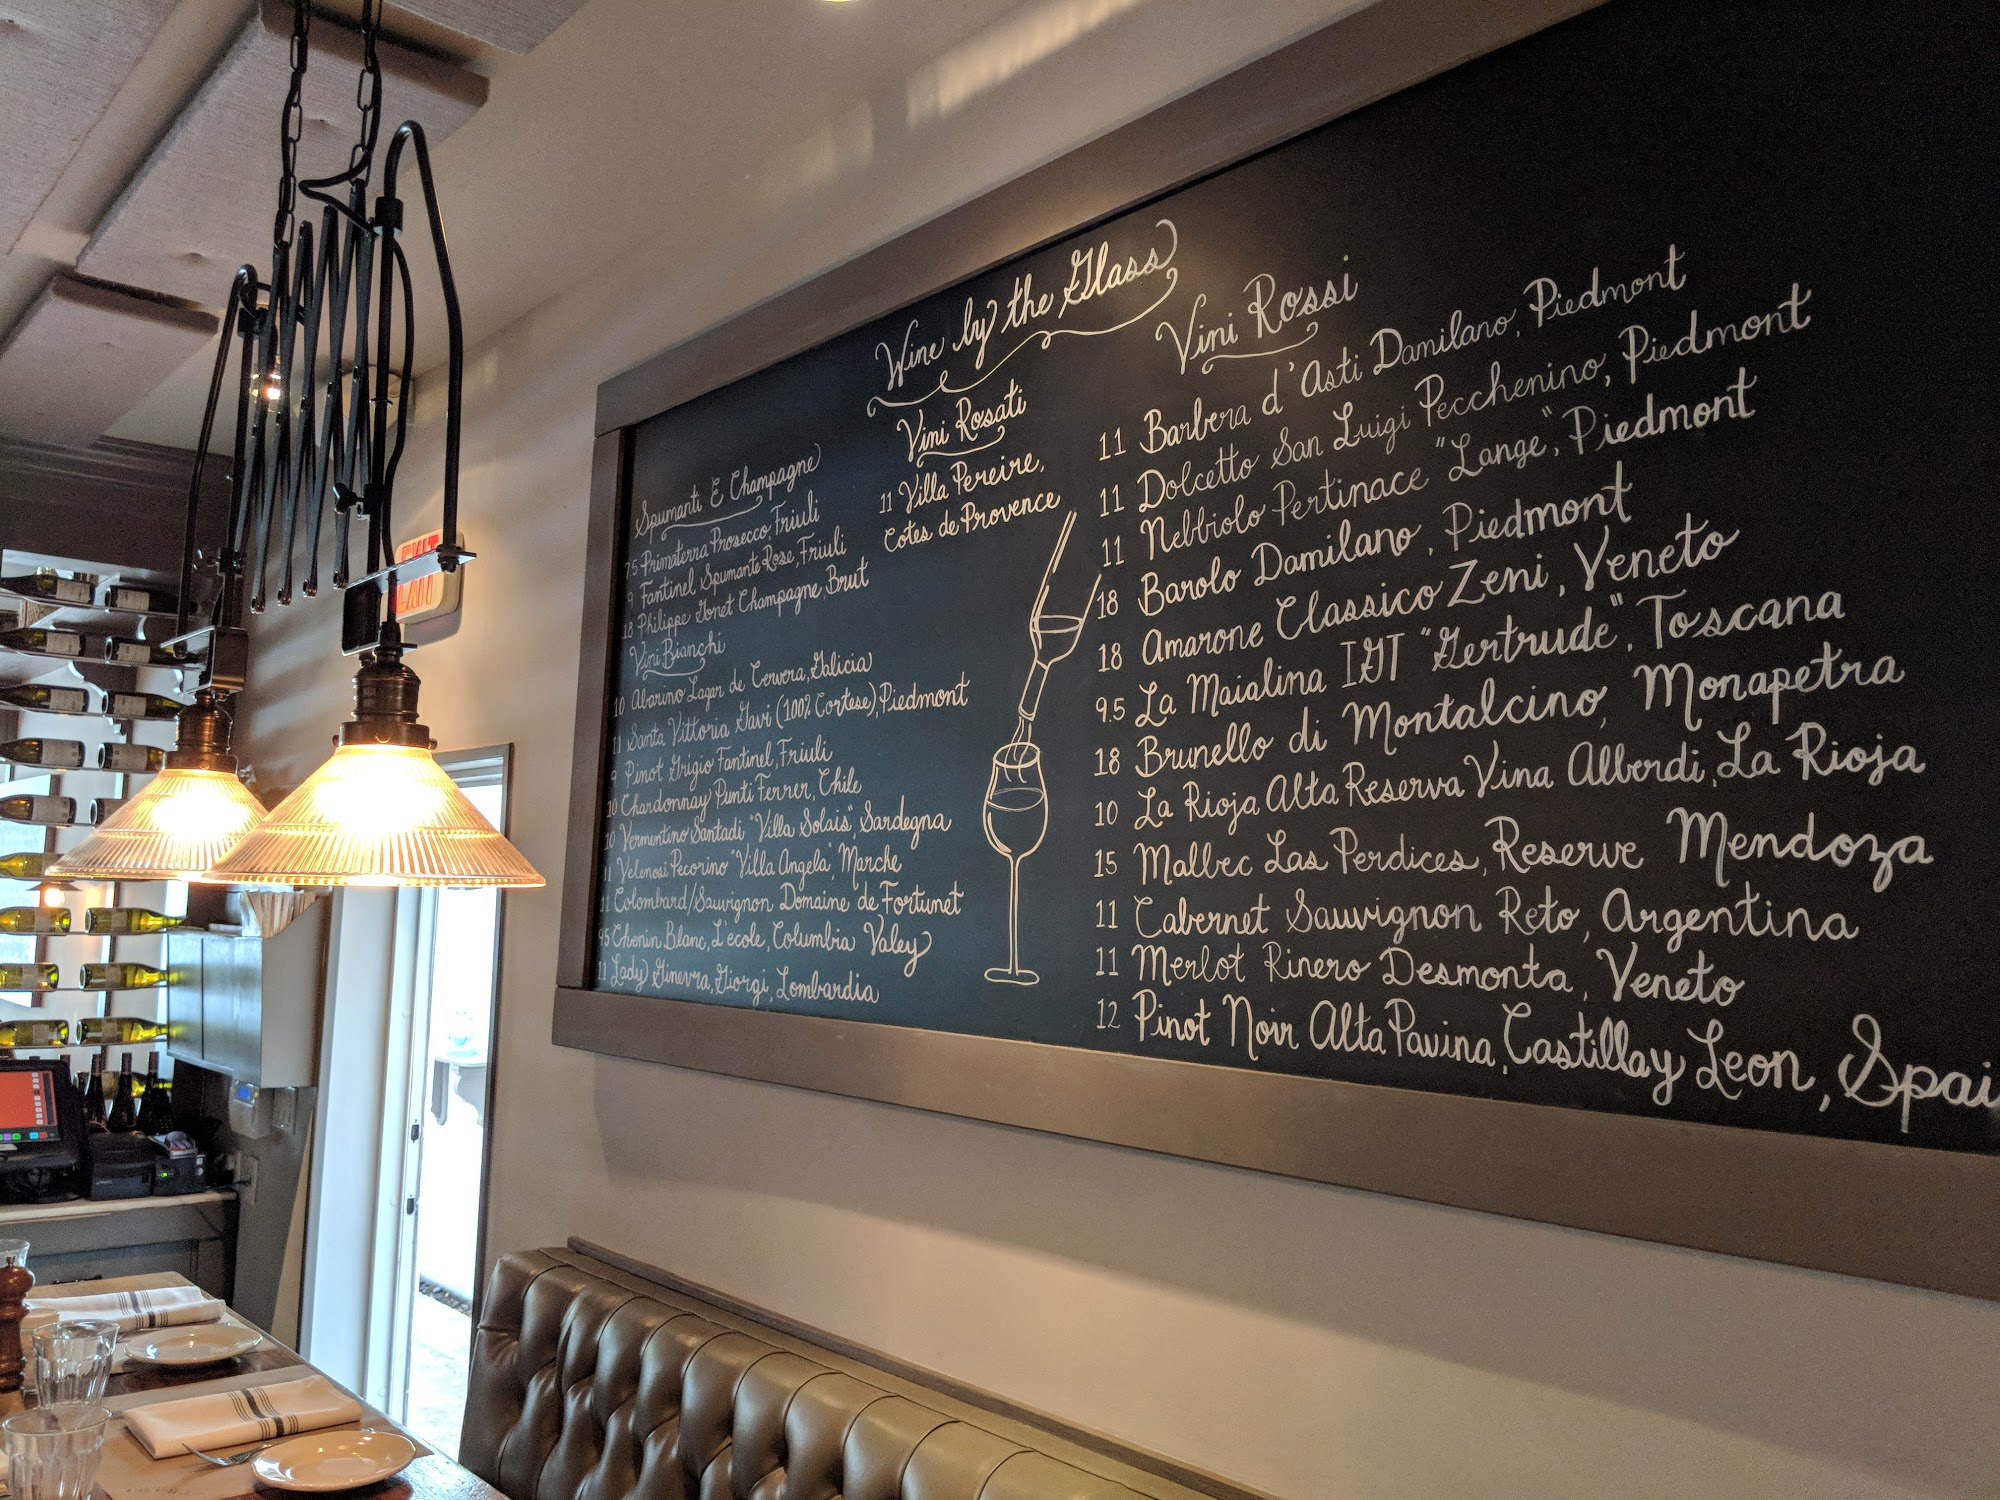 Wine by the Glass
Spumanti E Champagne
7.5 Primaterra Prosecco, Friuli
9 Fantinel Spumante Rose, Friuli
18 Philippe Gonet Champagne, Brut
Vini Bianchi
10 Abarino Lagar de Cervera, Galicia
11 Santa Vittoria Gavi (100% Cortese), Piedmont
9 Pinot Grigio Fantinel, Friuli
10 Chardonnay Punti Ferrer, Chile
10 Vermentino Santadi "Villa Solais" Sardegna
11 Velenosi Pecorino "Villa Angela", Marche
11 Colombard/Sauvignon Domaine de Fortunet
9.5 Chenin Blanc, L'ecole, Columbia Valey
11 Lady Ginevra, Giorgi, Lombardia
Vini Rosati
11 Villa Pereire,
Cotes de Provence
Vini Rossi
11 Barbera d'Asti Damilano, Piedmont
11 Dolcetto San Luigi Pecchenino, Piedmont
11 Nebbiolo Pertinace "Lange", Piedmont
18 Barolo Damilano, Piedmont
18 Amarone Classico Zeni, Veneto
9.5 La Maialina IGT "Gertrude", Toscana
18 Brunello di Montalcino, Monapetra
10 La Rioja Alta Reserva Vina Alberdi, La Rioja
15 Malbec Las Perdices, Reserve Mendoza
11 Cabernet Sauvignon Reto, Argentina
11 Merlot Rinero Desmonta, Veneto
12 Pinot Noir Alta Pavina, Castillay Leon, Spai
EXIT